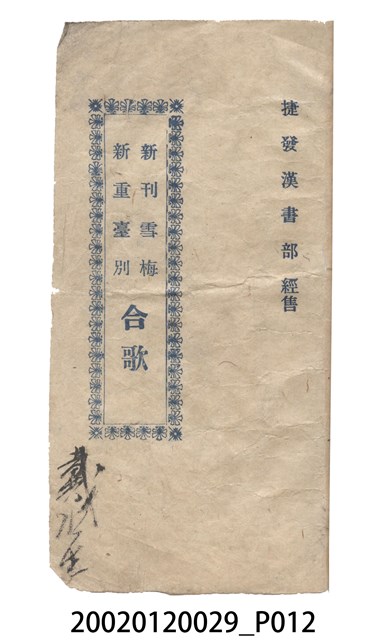 捷發漢書部經售
新刊雪梅
新重臺別
合歌
戴
20020120029_P012